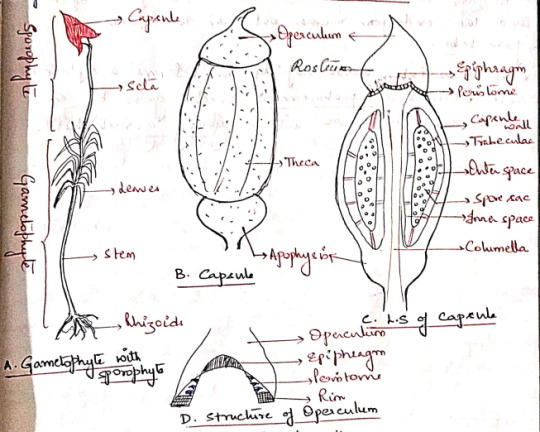 Sporophyte
Capsule
Seta
Gametophyte
Leaves
Stem
Rhizoids
A. Gametophyte with
sporophyte
Operculum
Theca
Apophysis
B. Capsule
Rostrum
Epiphragm
Peristome
Capsule
wall
Trabeculae
Outer space
Spore sac
Inner space
Columella
C. L.S of Capsule
Operculum
Epiphragm
Peristome
Rim
D. Structure of Operculum